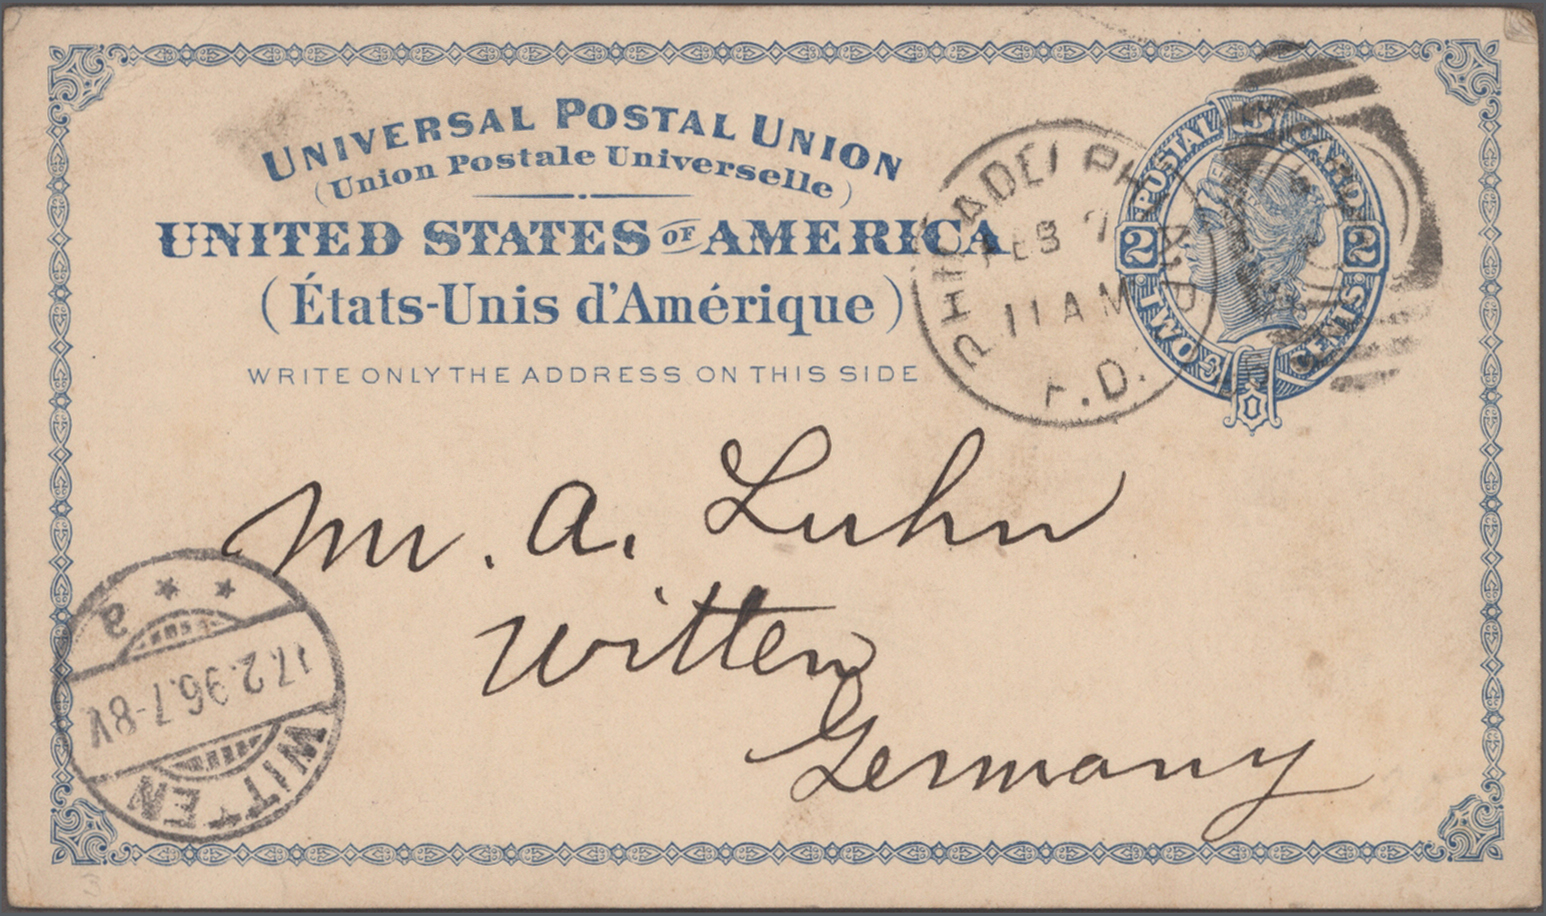 UNIVERSAL POSTAL UNION
(Union Postale Universelle)
UNITED STATES OF AMERICA
(États-Unis d'Amérique)
WRITE ONLY THE ADDRESS ON THIS SIDE
POSTAL CARD
2 2
TWO CENTS
PHILADELPHIA
FEB 7
11 AM
Mr. A. Luhn
Witten
Germany
WITTEN
17.2.96.7-8V
a